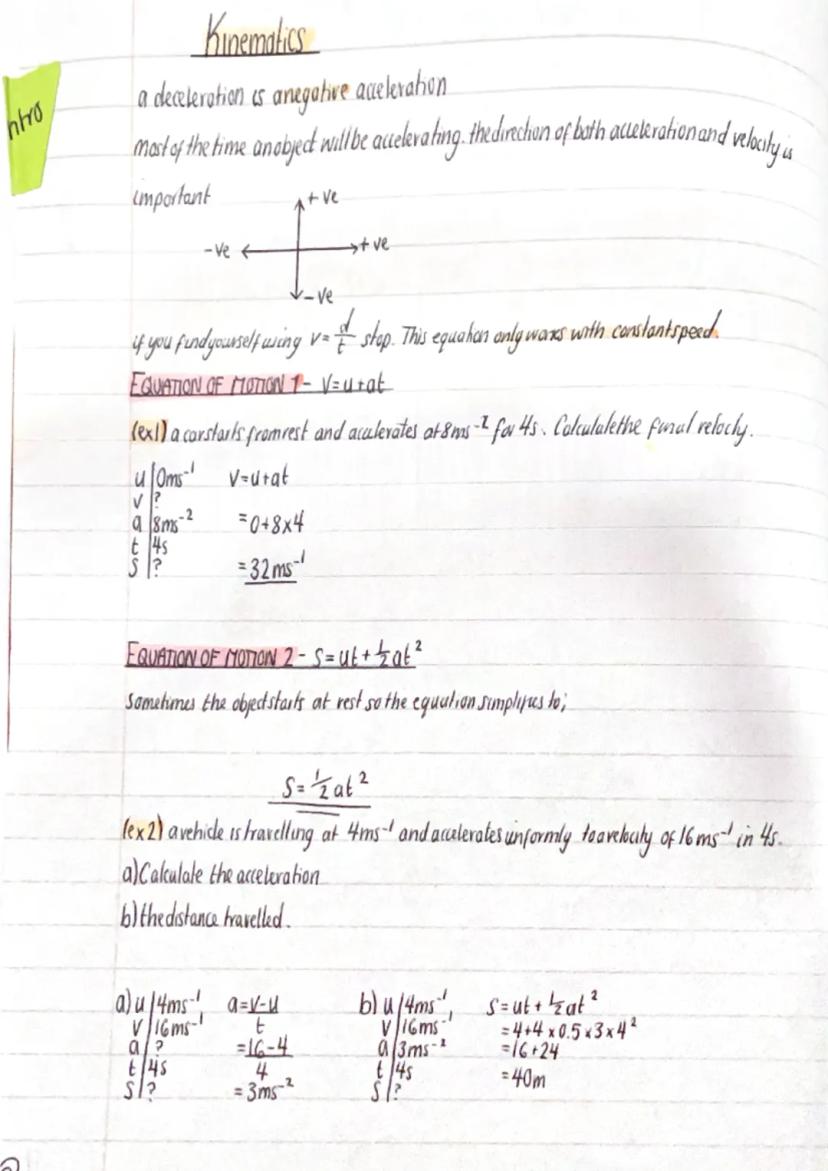 Kinematics
ntro
a deceleration is a negative acceleration
most of the time an object will be accelerating. the direction of both acceleration and velocity is
important
+ve
-ve +ve
-ve
if you find yourself using v = d/t stop. This equation only works with constant speed.
EQUATION OF MOTION 1 - V=u+at
(ex1) a car starts from rest and accelerates at 8ms⁻² for 4s. Calculate the final velocity.
u | 0ms⁻¹ V=u+at
v | ?
a | 8ms⁻² =0+8×4
t | 4s
s | ? =32ms⁻¹
EQUATION OF MOTION 2 - S=ut+½at²
Sometimes the object starts at rest so the equation simplifies to;
S=½at²
(ex2) a vehicle is travelling at 4ms⁻¹ and accelerates uniformly to a velocity of 16ms⁻¹ in 4s.
a) Calculate the acceleration
b) the distance travelled.
a) u | 4ms⁻¹ a=v-u b) u | 4ms⁻¹ S=ut+½at²
v | 16ms⁻¹ t v | 16ms⁻¹ =4+4×0.5×3×4²
a | ? =16-4 a | 3ms⁻² =16+24
t | 4s 4 t | 4s =40m
s | ? =3ms⁻² s | ?